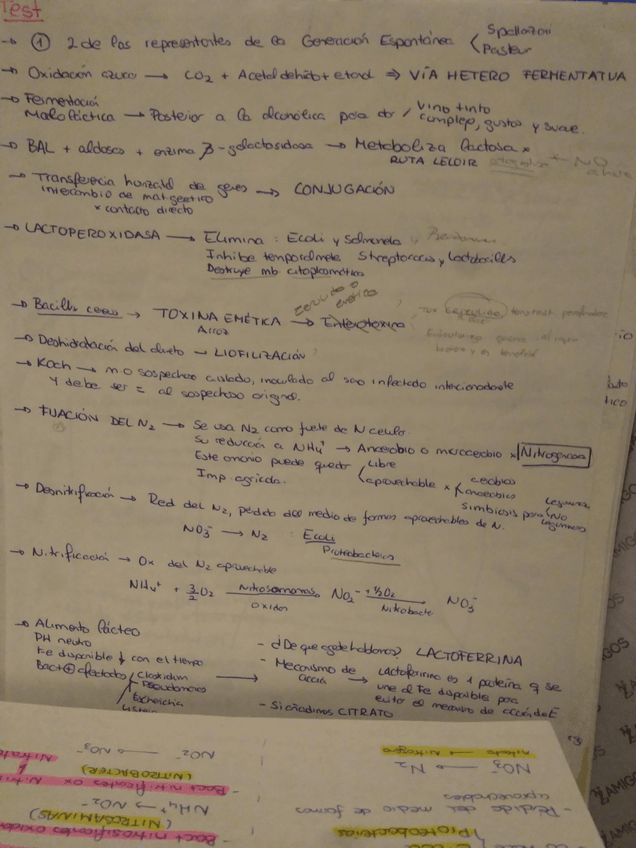 Test
→ ① 2 de los representantes de la Generación Espontánea < Spallazani
Pasteur
→ Oxidación azucar → CO2 + Acetaldehido + etanol ⇒ VÍA HETERO FERMENTATIVA
→ Fermentación
Maloláctica → Posterior a la alcohólica para dar / vino tinto
complejo, gustoso y suave.
→ BAL + aldosas + enzima β-galactosidasa → Metaboliza lactosa x
RUTA LELOIR
→ Transferencia horizontal de genes → CONJUGACIÓN
intercambio de mat. genético
x contacto directo
→ LACTOPEROXIDASA → Elimina: Ecoli y Salmonela y
Inhibe temporalmente Streptococos y Lactobacillus
Destruye mb citoplasmática
→ Bacillus cereus → TOXINA EMÉTICA → Enterotoxina
Arroz
→ Deshidratación del directo - LIOFILIZACIÓN
→ Koch → m.o sospechoso aislado, inoculado al sano infectado intencionadamente
y debe ser = al sospechoso original.
→ FIJACIÓN DEL N2 → Se usa N2 como fuente de N celular
Su reducción a NH4+ → Anaerobio o microaerobio x Nitrogenasa
Este amonio puede quedar < libre
aprovechable x < aerobios
anaerobios
simbiosis para < Leguminosas
No leguminosas
Imp agrícola.
→ Desnitrificación → Red del N2, pérdida del medio de formas aprovechables de N.
NO3- → N2 : Ecoli
Proteobacterias
→ Nitrificación → Ox del N2 aprovechable
NH4+ + 3/2 O2 Nitrosomonas NO2- + 1/2 O2 NO3-
Oxidan Nitrobacter
→ Alimento lácteo
PH neutro
Fe disponible ↓ con el tiempo
Bact ⊕ afectadas / Clostridium
Pseudomonas
Escherichia
Listeria
- ¿De que agente hablamos? LACTOFERRINA
- Mecanismo de acción → Lactoferrina es 1 proteína q se
une al Fe disponible para
evitar el
- Si añadimos CITRATO
NO2- → NO3-
(NITROBACTER)
- Bact nitrificantes ox
NH4+ → NO2-
(NITROSOMINAS)
- Bact nitrosificantes oxidan
nitrato → Nitrogeno
NO3- → N2
- Pérdida del medio de formas
aprovechables
Proteobacterias
AMIGOS